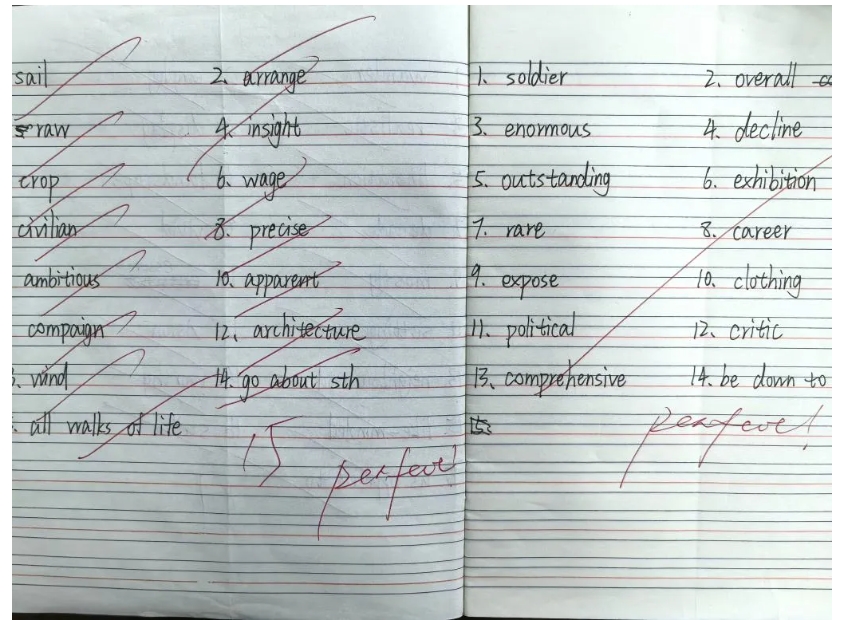 sail 2. arrange
raw 4. insight
crop 6. wage
civilian 8. precise
ambitious 10. apparent
compaign 12. architecture
wind 14. go about sth
all walks of life
15
perfect!
1. soldier 2. overall
3. enormous 4. decline
5. outstanding 6. exhibition
7. rare 8. career
9. expose 10. clothing
11. political 12. critic
13. comprehensive 14. be down to
perfect!